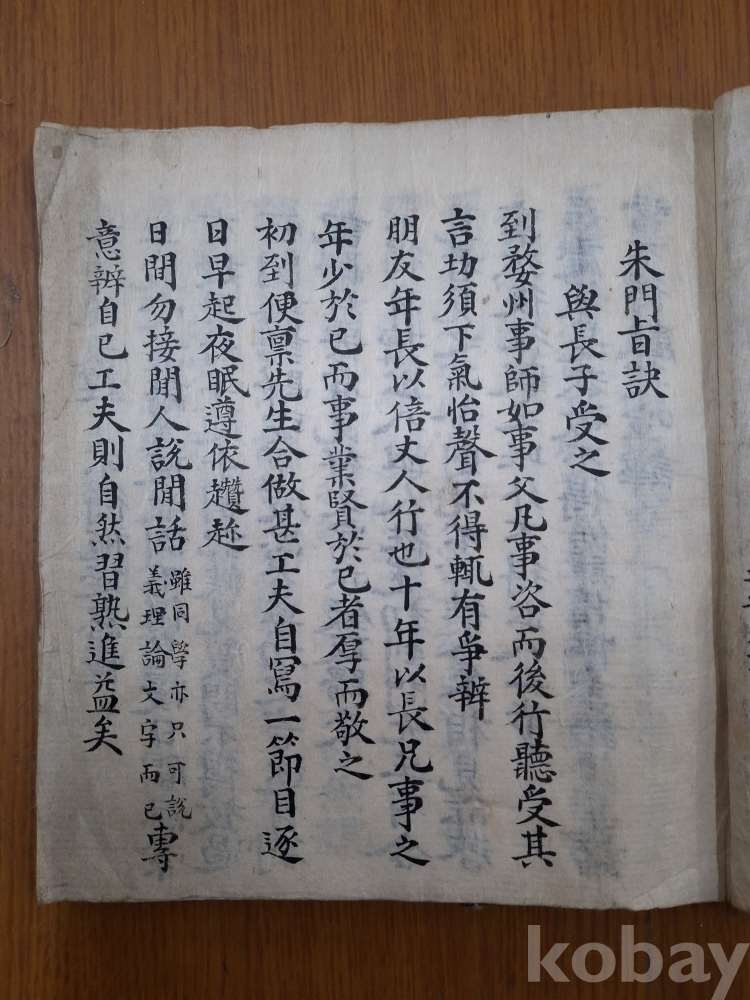 朱門旨訣
與長子受之
到婺州事師如事父凡事咨而後行聽受其
言㓛須下氣怡聲不得輒有爭辨
朋友年長以倍丈人行也十年以長兄事之
年少於已而事業賢於已者厚而敬之
初到便禀先生合做甚工夫自寫一節目逐
日早起夜眠遵依趲趂
日間勿接閒人說閒話雖同學亦只可說義理論文字而已專
意辨自已工夫則自然習熟進益矣
kobay